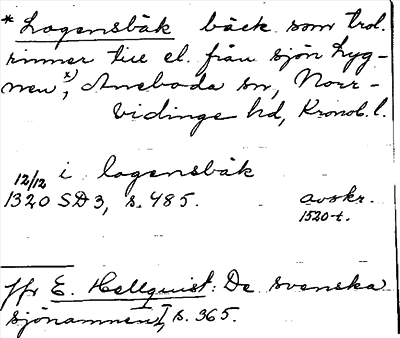 * Lagensbäk bäck som trol.
rinner till el. från sjön Lyg-
nen x), Aneboda sn, Norr-
vidinge hd, Kronob. l.
12/12 i lagensbäk
1320 SD 3, s. 485. avskr.
1520-t.
Jfr E. Hellquist: De svenska
sjönamnen I, s. 365.